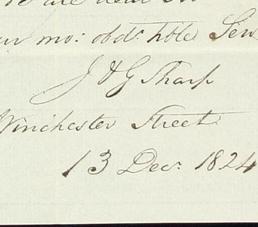 mo: obdt: hble Ser
J & G Sharp
Winchester Street
13 Decr. 1824